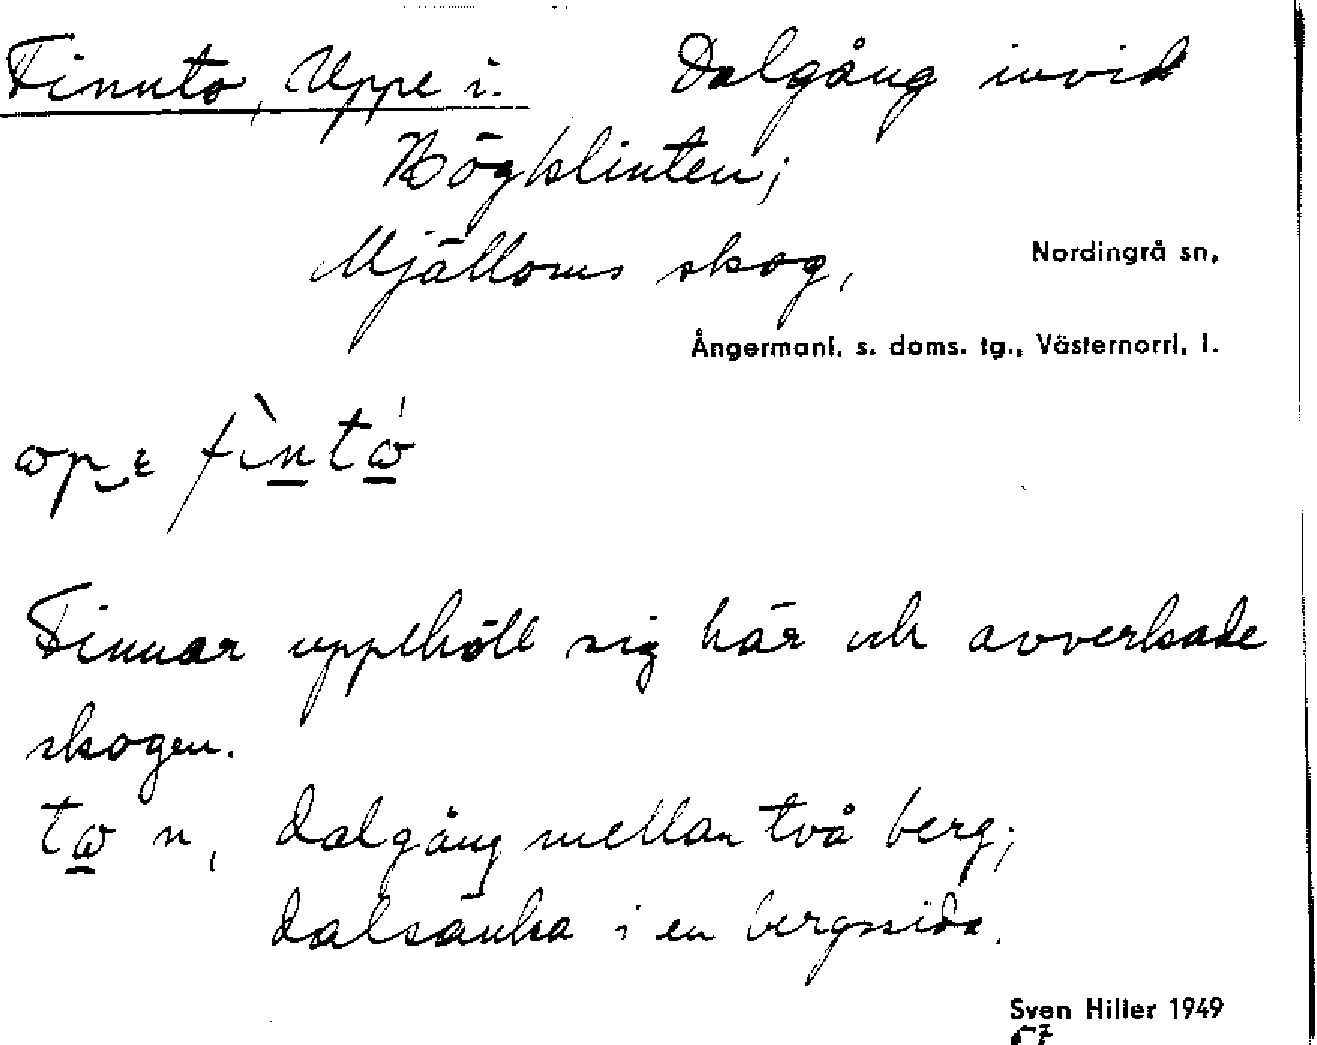 Finnto, Uppe i. Dalgång invid
Högklinten;
Mjälloms skog, Nordingrå sn,
Ångermanl. s. doms. tg., Västernorrl. l.
Finnar uppehöll sig här och avverkade
skogen.
n, dalgång mellan två berg;
dalsänka i en bergssida.
Sven Hiller 1949
57